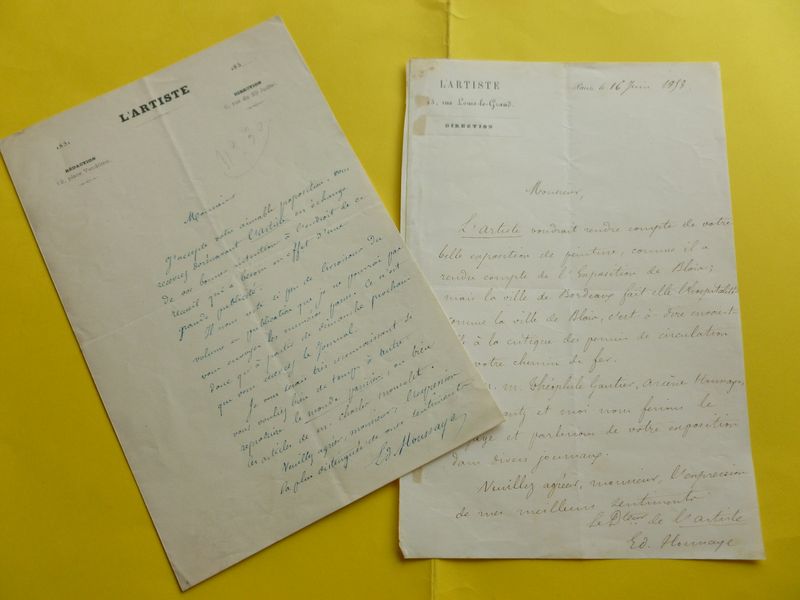 185
L'ARTISTE
DIRECTION
rue du 29 Juillet
185
RÉDACTION
12, place Vendôme
Monsieur
J'accepte votre aimable proposition. vous
recevrez dorénavant l'artiste en échange
de vos bonnes intentions à l'endroit de ce
recueil qui a besoin en effet d'une
grande publicité.
Il nous reste si peu de livraisons du
volume en publication que je ne pourrai pas
vous envoyer les numéros parus. Ce n'est
donc qu'à partir de dimanche prochain
que vous recevrez le Journal.
Je vous serai très reconnaissant si
vous vouliez bien de temps à autre
reproduire le monde parisien, ou bien
les articles de m. charles monselet.
Veuillez agréer, monsieur, l'expression
la plus distinguée de mes sentiments
Ed. Houssaye
L'ARTISTE
rue Louis-le-Grand.
DIRECTION
16 Juin 1853
Monsieur,
L'artiste voudrait rendre compte de votre
belle exposition de peinture, comme il a
rendu compte de l'Exposition de Blois;
mais la ville de Bordeaux fait elle l'hospitalité
comme la ville de Blois, c'est à dire
à la critique des permis de circulation
votre chemin de fer.
m. Théophile Gautier, Arsène Houssaye,
et moi nous ferions le
et parlerions de votre exposition
dans divers journaux.
Veuillez agréer, monsieur, l'expression
de mes meilleurs sentiments
Le Dteur de l'artiste
Ed. Houssaye